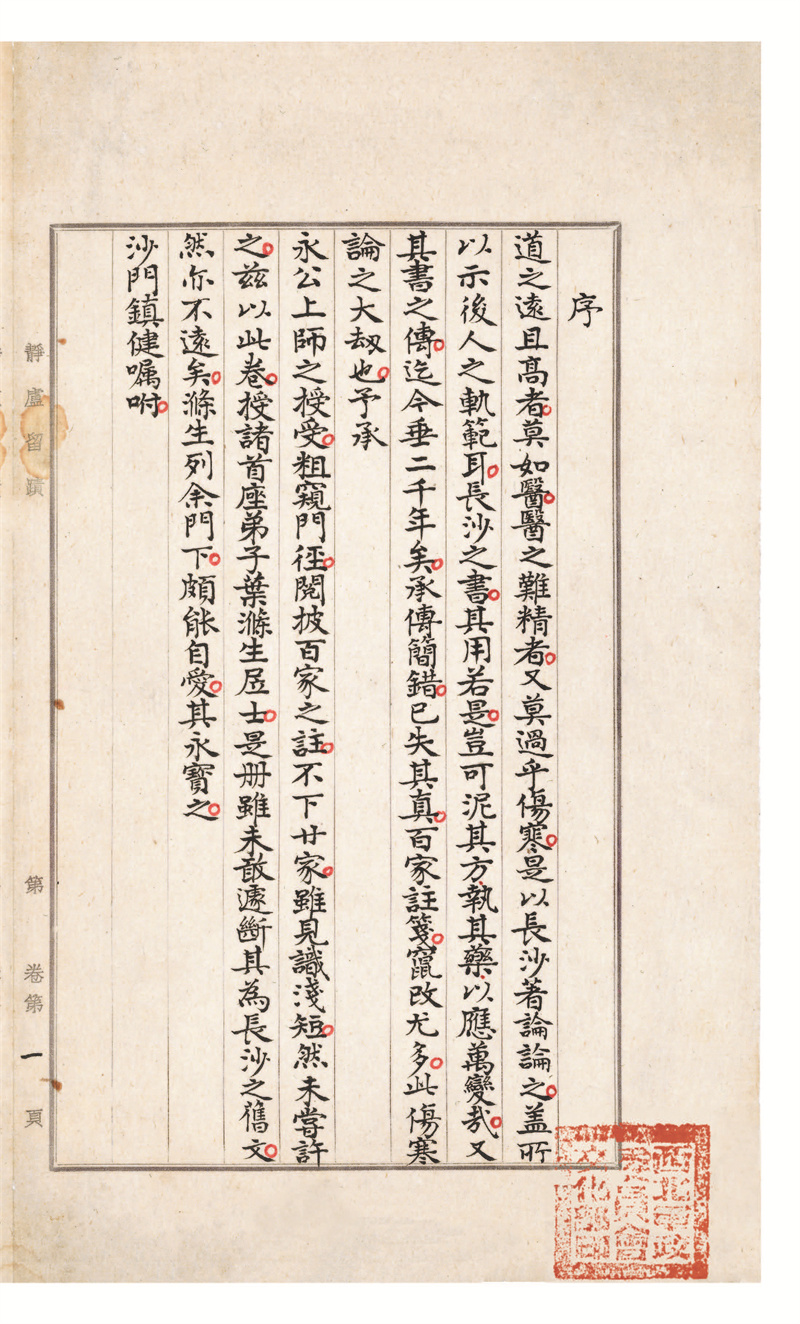 序
道之遠且高者莫如醫醫之難精者又莫過乎傷寒是以長沙著論論之盖所
以示後人之軌範耳長沙之書其用若是豈可泥其方執其藥以應萬變哉又
其書之傳迄今垂二千年矣承傳簡錯已失其真百家註箋竄改尤多此傷寒
論之大劫也予承
永公上師之授受粗窺門徑閱披百家之註不下廿家雖見識淺短然未嘗許
之兹以此卷授諸首座弟子葉滌生居士是册雖未敢遽斷其為長沙之舊文
然亦不遠矣滌生列余門下頗能自愛其永寶之
沙門鎮健囑咐
靜廬留蹟
第 卷第一頁